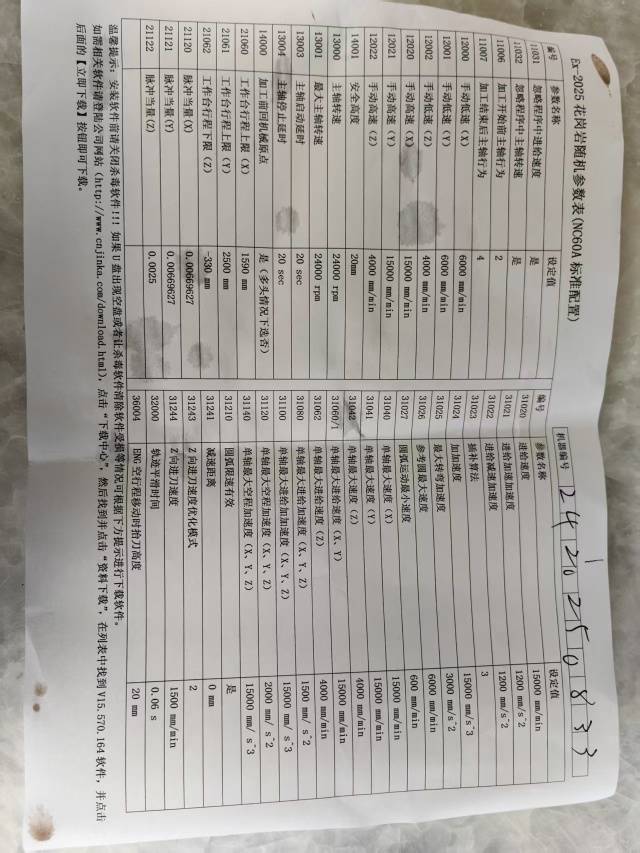 Ex-2025 花岗岩随机参数表(NC60A 标准配置)
机器编号 2 4 2 0 2 5 0 8 3 3
编号 参数名称 设定值 编号 参数名称 设定值
11031 忽略程序中进给速度 是 31020 进给速度 15000 mm/min
11032 忽略程序中主轴转速 是 31021 进给加速度 1200 mm/s^2
11006 加工开始前主轴行为 2 31022 进给减速加速度 1200 mm/s^2
11007 加工结束后主轴行为 4 31023 插补算法 3
12000 手动低速 (X) 6000 mm/min 31024 加加速度 15000 mm/s^3
12001 手动低速 (Y) 6000 mm/min 31025 最大转弯加速度 3000 mm/s^2
12002 手动低速 (Z) 4000 mm/min 31026 参考圆最大速度 6000 mm/min
12020 手动高速 (X) 15000 mm/min 31027 圆弧运动最小速度 600 mm/min
12021 手动高速 (Y) 15000 mm/min 31040 单轴最大速度 (X) 15000 mm/min
12022 手动高速 (Z) 4000 mm/min 31041 单轴最大速度 (Y) 15000 mm/min
14001 安全高度 20mm 31042 单轴最大速度 (Z) 4000 mm/min
13000 主轴转速 24000 rpm 31060/1 单轴最大进给速度 (X、Y) 15000 mm/min
13001 最大主轴转速 24000 rpm 31062 单轴最大进给速度 (Z) 4000 mm/min
13003 主轴启动延时 20 sec 31080 单轴最大进给加速度 (X、Y、Z) 1500 mm/ s^2
13004 主轴停止延时 20 sec 31100 单轴最大进给加加速度 (X、Y、Z) 15000 mm/ s^3
14000 加工前回机械原点 是 (多头情况下选否) 31120 单轴最大空程加速度 (X、Y、Z) 2000 mm/ s^2
21060 工作台行程上限 (X) 1590 mm 31140 单轴最大空程加加速度 (X、Y、Z) 15000 mm/ s^3
21061 工作台行程上限 (Y) 2500 mm 31210 圆弧限速有效 是
21062 工作台行程下限 (Z) -330 mm 31241 减速距离 0 mm
21120 脉冲当量(X) 0.00669627 31243 Z 向进刀速度优化模式 2
21121 脉冲当量(Y) 0.00669627 31244 Z 向进刀速度 1500 mm/min
21122 脉冲当量(Z) 0.0025 32000 轨迹平滑时间 0.06 s
36004 ENG 空行程移动时抬刀高度 20 mm
温馨提示：安装软件前请关闭杀毒软件!!! 如果 U 盘出现空盘或者让杀毒软件清除软件受损等情况可根据下方提示进行下载软件。
如需相关软件请登陆公司网站 (http://www.cnjinka.com/download.html), 点击“下载中心”, 然后找到并点击“资料下载”, 在列表中找到 V15.570.164 软件, 并点击
后面的【立即下载】按钮即可下载。